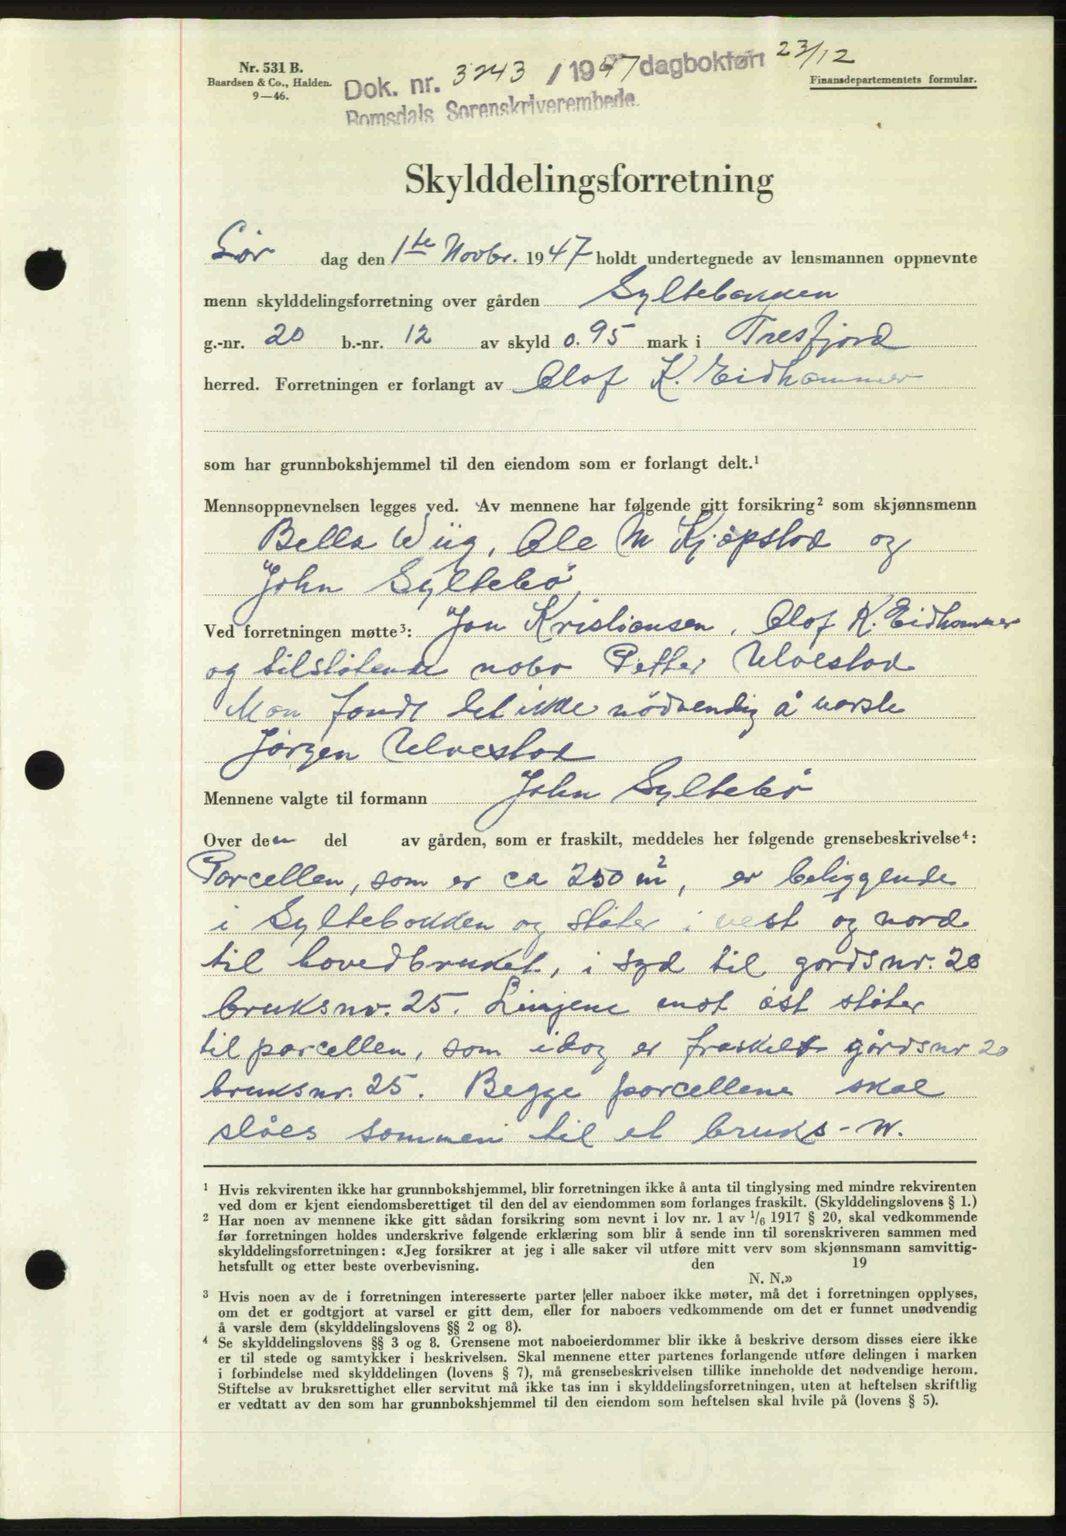 Nr. 531 B.
Baardsen & Co., Halden.
9—46.
Dok. nr. 3243 / 1947 dagbokført 23/12
Romsdals Sorenskriverembede.
Finansdepartementets formular.
Skylddelingsforretning
Lør dag den 1ste Novbr. 1947 holdt undertegnede av lensmannen oppnevnte
menn skylddelingsforretning over gården Syltebakken
g.-nr. 20 b.-nr. 12 av skyld 0.95 mark i Tresfjord
herred. Forretningen er forlangt av Olaf K. Eidhammer
som har grunnbokshjemmel til den eiendom som er forlangt delt.¹
Mennsoppnevnelsen legges ved. Av mennene har følgende gitt forsikring² som skjønnsmenn
Bella Wiig, Ole M Kjøpstad og
John Syltebø
Ved forretningen møtte³: Jan Kristiansen, Olaf K. Eidhammer
og tilstøtende nabo Petter Ulvestad
Man fandt det ikke nödvendig å varsle
Jørgen Ulvestad
Mennene valgte til formann John Syltebø
Over den del av gården, som er fraskilt, meddeles her følgende grensebeskrivelse⁴:
Parcellen, som er ca 250 m², er beliggende
i Syltebakken og støter i vest og nord
til hovedbruket, i syd til gårdsnr. 20
bruksnr. 25. Linjene mot øst støter
til parcellen, som idag er fraskilt gårdsnr 20
bruksnr. 25. Begge parcellene skal
slåes sammen til et bruks-nr.
¹ Hvis rekvirenten ikke har grunnbokshjemmel, blir forretningen ikke å anta til tinglysing med mindre rekvirenten
ved dom er kjent eiendomsberettiget til den del av eiendommen som forlanges fraskilt. (Skylddelingslovens § 1.)
² Har noen av mennene ikke gitt sådan forsikring som nevnt i lov nr. 1 av 1/6 1917 § 20, skal vedkommende
før forretningen holdes underskrive følgende erklæring som blir å sende inn til sorenskriveren sammen med
skylddelingsforretningen: «Jeg forsikrer at jeg i alle saker vil utføre mitt verv som skjønnsmann samvittig-
hetsfullt og etter beste overbevisning. den 19
N. N.»
³ Hvis noen av de i forretningen interesserte parter eller naboer ikke møter, må det i forretningen opplyses,
om det er godtgjort at varsel er gitt dem, eller for naboers vedkommende om det er funnet unødvendig
å varsle dem (skylddelingslovens §§ 2 og 8).
⁴ Se skylddelingslovens §§ 3 og 8. Grensene mot naboeierdommer blir ikke å beskrive dersom disses eiere ikke
er til stede og samtykker i beskrivelsen. Skal mennene etter partenes forlangende utføre delingen i marken
i forbindelse med skylddelingen (lovens § 7), må grensebeskrivelsen tillike inneholde det nødvendige herom.
Stiftelse av bruksrettighet eller servitut må ikke tas inn i skylddelingsforretningen, uten at heftelsen skriftlig
er vedtatt av den som har grunnbokshjemmel til den eiendom som heftelsen skal hvile på (lovens § 5).